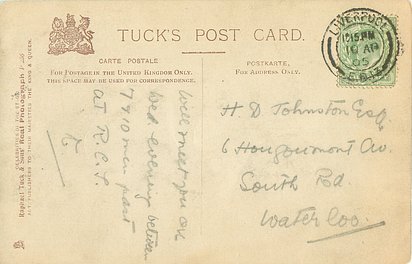 TUCK'S POST CARD.
CARTE POSTALE
POSTKARTE.
FOR POSTAGE IN THE UNITED KINGDOM ONLY.
THIS SPACE MAY BE USED FOR CORRESPONDENCE.
FOR ADDRESS ONLY.
LIVERPOOL
12.15 PM
05
Raphael Tuck & Sons' Real Photograph
ART PUBLISHERS TO THEIR MAJESTIES THE KING & QUEEN.
Will meet you on
Wed evening between
7 & 10 min past
at R.C.S.
H. D. Johnston Esq
6 Hougoumont Av.
South Rd.
Waterloo.